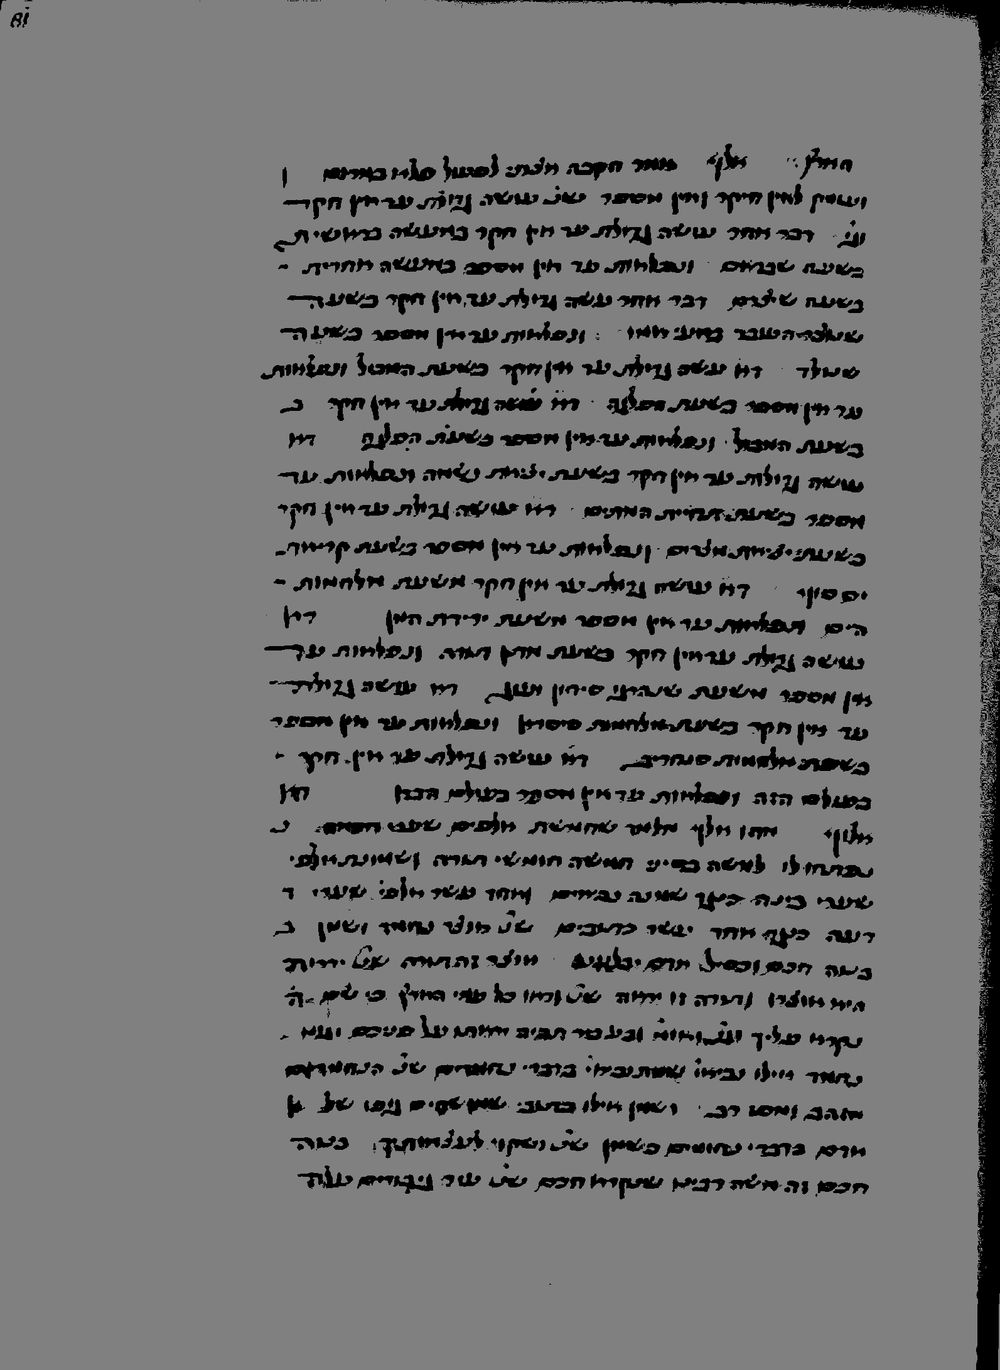 הארץ אלף אמר הקבה
ועומק לאין חיקר ואין מספר שנ׳ עושה גדולות עד אין חקר
וגו׳ דבר אחר עושה גדולות עד אין חקר במעשה בראשית
בשעת שבראם ונפלאות עד אין מספר במעשה אחרית
בשעה שיצרם דבר אחר עושה גדולות עד אין חקר בשעה
העובר במעי אמו ונפלאות עד אין מספר בשעה
שנולד דא עושה גדולות עד אין חקר בשעת המבול ונפלאות
עד אין מספר בשעת הפלגה דא עושה גדולות עד אין חקר ב
בשעת המבול ונפלאות עד אין מספר בשעת הפלגה דא
עושה גדולות עד אין חקר בשעת יציאת נשמה ונפלאות עד
מספר בשעת תחיית המתים דא עושה גדולות עד אין חקר
בשעת יציאת מצרים ונפלאות עד אין מספר בשעת קריעת
ים סוף דא עושה גדולות עד אין חקר משעת מלחמות
הים ונפלאות עד אין מספר משעת ירידת המן דא
עושה גדולות עד אין חקר בשעת מתן תורה ונפלאות עד
אין מספר משעת סיחון ועוג דא עושה גדולות
עד אין חקר בשעת מלחמות סיסרא ונפלאות עד אין מספר
בשעת מלחמות סנחריב דא עושה גדולות עד אין חקר
בעולם הזה ונפלאות עד אין מספר בעולם הבא דא
אלוף מהו אלף מלמד שחמשת אלפים שערי חכמה נ
נפתחו לו למשה בסיני חמשה חומשי תורה ושמונת אלפי
שערי בינה כנגד שמנה נביאים ואחד עשר אלפי שערי ד
דעה כנגד אחד עשר כתובים שנ׳ אוצר נחמד ושמן ב
בנוה חכם וכסיל אדם יבלענו אוצר זה תורה שנ׳ יראת
היא אוצרו תורה זו יראה שנ׳ וראו כל עמי הארץ כי שם ה׳
נקרא עליך וגו׳ ואומ׳ ובעבור תהיה יראתו על פניכם
נחמד אילו נביאי בדברי נחומים שנ׳ הנחמדים
מזהב ומפז רב ושמן אילו כתובי שמן של א
אדם בדברי נחומים כשמן שנ׳ ושקוי לעצמותיך בנוה
חכם זה משה רבינו שנקרא חכם שנ׳ עיר גיבורים עלה